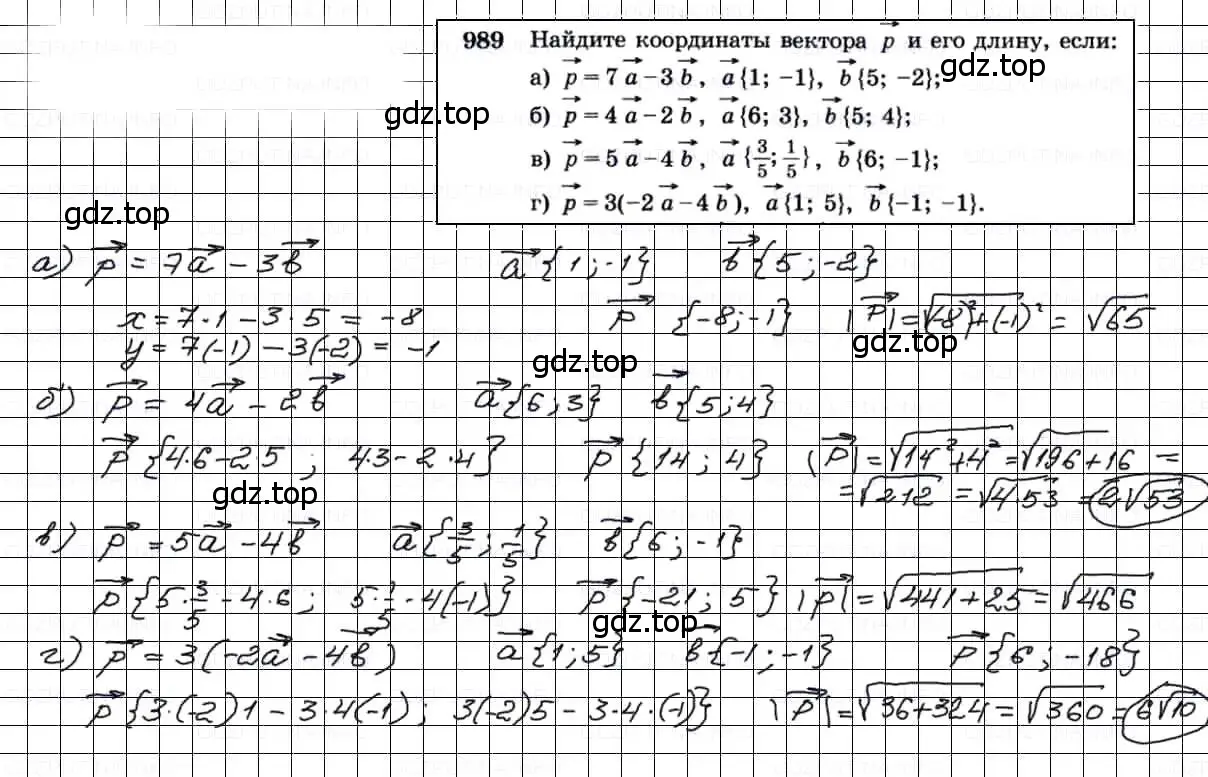 989 Найдите координаты вектора p⃗ и его длину, если:
а) p⃗ = 7a⃗ − 3b⃗, a⃗{1; −1}, b⃗{5; −2};
б) p⃗ = 4a⃗ − 2b⃗, a⃗{6; 3}, b⃗{5; 4};
в) p⃗ = 5a⃗ − 4b⃗, a⃗{3/5; 1/5}, b⃗{6; −1};
г) p⃗ = 3(−2a⃗ − 4b⃗), a⃗{1; 5}, b⃗{−1; −1}.
gdz.top
gdz.top
gdz.top
а) p⃗ = 7a⃗ − 3b⃗ a⃗{1; -1} b⃗{5; -2}
x = 7·1 − 3·5 = −8 p⃗ {−8; −1} |p⃗| = √(-8)²+(-1)² = √65
y = 7(-1) − 3(-2) = −1
gdz.top
б) p⃗ = 4a⃗ − 2b⃗ a⃗{6; 3} b⃗{5; 4}
p⃗ {4·6−2·5 ; 4·3−2·4} p⃗ {14; 4} |p⃗| = √14²+4² = √196+16 =
= √212 = √4·53 = 2√53
gdz.top
в) p⃗ = 5a⃗ − 4b⃗ a⃗{3/5; 1/5} b⃗{6; -1}
p⃗ {5·3/5 − 4·6; 5·1/5 − 4(-1)} p⃗ {−21; 5} |p⃗| = √441+25 = √466
gdz.top
г) p⃗ = 3(−2a⃗ − 4b⃗) a⃗{1; 5} b⃗{−1; −1} p⃗ {6; −18}
p⃗ {3·(−2)1 − 3·4(−1); 3(−2)5 − 3·4·(−1)} |p⃗| = √36+324 = √360 = 6√10